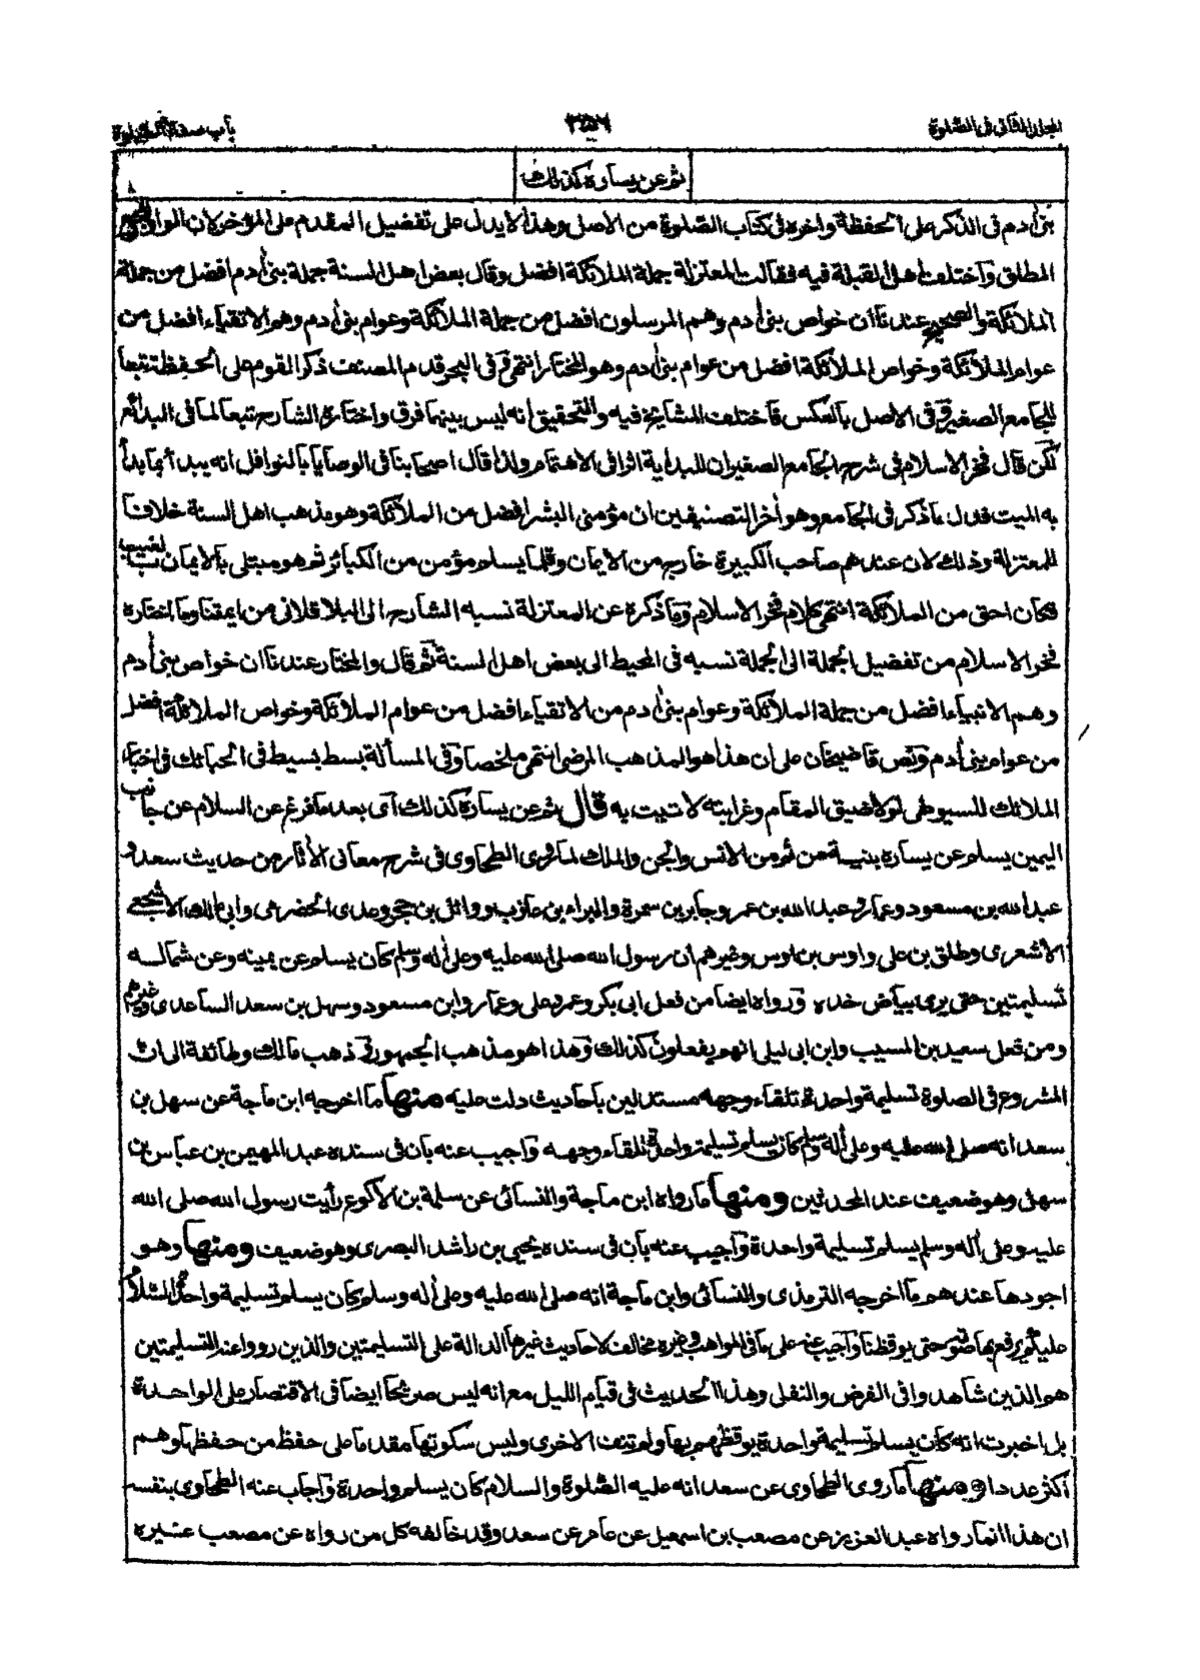 المجلد الثانی فی الصلوة
٣٥٦
باب صفة الصلوة
ثم عن يساره كذلك
بنی أدم فی الذكر علی الحفظة واخره فی كتاب الصلوة من الاصل وهذا لا يدل علی تفضيل المقدم علی المؤخر لان الواو
المطلق واختلف اهل القبلة فيه فقالت المعتزلة جملة الملائكة افضل وقال بعض اهل السنة جملة بنی أدم افضل من جملة
الملائكة والصحيح عندنا ان خواص بنی أدم وهم المرسلون افضل من جملة الملائكة وعوام بنی أدم وهم الاتقياء افضل من
عوام الملائكة وخواص الملائكة افضل من عوام بنی أدم وهو المختار انتهی وفی البحر قدم المصنف ذكر القوم علی الحفظة تبعا
للجامع الصغير وفی الاصل بالعكس فاختلف المشائخ فيه والتحقيق انه ليس بينهما فرق واختاره الشارح تبعا لما فی البدائع
لكن قال فخر الاسلام فی شرح الجامع الصغير ان للبداية اثرا فی الاهتمام ولذا قال اصحابنا فی الوصايا بالنوافل انه يبدأ بما بدأ
به الميت فدل ما ذكر فی الجامع وهو أخر التصنيفين ان مؤمنی البشر افضل من الملائكة وهو مذهب اهل السنة خلافا
للمعتزلة وذلك لان عندهم صاحب الكبيرة خارج من الايمان وقلما يسلم مؤمن من الكبائر ثم هو مبتلی بالايمان بالغيب
فكان احق من الملائكة انتهی كلام فخر الاسلام وما ذكره عن المعتزلة نسبه الشارح الی الباقلانی من ايمتنا وما اختاره
فخر الاسلام من تفضيل الجملة الی الجملة نسبه فی المحيط الی بعض اهل السنة ثم قال والمختار عندنا ان خواص بنی أدم
وهم الانبياء افضل من جملة الملائكة وعوام بنی أدم من الاتقياء افضل من عوام الملائكة وخواص الملائكة افضل
من عوام بنی أدم ونص قاضيخان علی ان هذا هو المذهب المرضی انتهی ملخصا وفی المسألة بسط بسيط فی الحبائك فی اخبار
الملائك للسيوطی لولا ضيق المقام وغرابته لاتيت به قال ثم عن يساره كذلك ای بعد ما فرغ عن السلام عن جانب
اليمين يسلم عن يساره بنية من ثم من الانس والجن والملك لما روی الطحاوی فی شرح معانی الأثار من حديث سعد و
عبد الله بن مسعود وعمار وعبد الله بن عمر وجابر بن سمرة والبراء بن عازب ووائل بن حجر وعدی الحضرمی وابی مالك الاشجعی
الاشعری وطلق بن علی واوس بن اوس وغيرهم ان رسول الله صلی الله عليه وعلی أله وسلم كان يسلم عن يمينه وعن شماله
تسليمتين حتی يری بياض خده ورواه ايضا من فعل ابی بكر وعمر وعلی وعمار وابن مسعود وسهل بن سعد الساعدی وغيرهم
ومن فعل سعيد بن المسيب وابن ابی ليلی انهم يفعلون كذلك وهذا هو مذهب الجمهور وذهب مالك وطائفة الی ان
المشروع فی الصلوة تسليمة واحدة تلقاء وجهه مستدلين باحاديث دلت عليه منها ما اخرجه ابن ماجة عن سهل بن
سعد انه صلی الله عليه وعلی أله وسلم كان يسلم تسليمة واحدة تلقاء وجهه واجيب عنه بان فی سنده عبد المهيمن بن عباس بن
سهل وهو ضعيف عند المحدثين ومنها ما رواه ابن ماجة والنسائی عن سلمة بن الاكوع رأيت رسول الله صلی الله
عليه وعلی أله وسلم يسلم تسليمة واحدة واجيب عنه بان فی سنده يحيی بن راشد البصری وهو ضعيف ومنها وهو
اجودها عندهم ما اخرجه الترمذی والنسائی وابن ماجة انه صلی الله عليه وعلی أله وسلم كان يسلم تسليمة واحدة السلام
عليكم يرفع بها صوته حتی يوقظنا واجيب عنه علی ما فی المواهب وغيره مخالف لاحاديث غيرها الدالة علی التسليمتين والذين رووا عنه التسليمتين
هم الذين شاهدوا فی الفرض والنفل وهذا الحديث فی قيام الليل مع انه ليس صريحا ايضا فی الاقتصار علی الواحدة
بل اخبرت انه كان يسلم تسليمة واحدة يوقظهم بها ولم تنف الاخری وليس سكوتها مقدما علی حفظ من حفظها وهم
اكثر عددا ومنها ما روی الطحاوی عن سعد انه عليه الصلوة والسلام كان يسلم واحدة واجاب عنه الطحاوی بنفسه
ان هذا انما رواه عبد العزيز عن مصعب بن اسمعيل عن عامر عن سعد وقد خالفه كل من رواه عن مصعب غيره